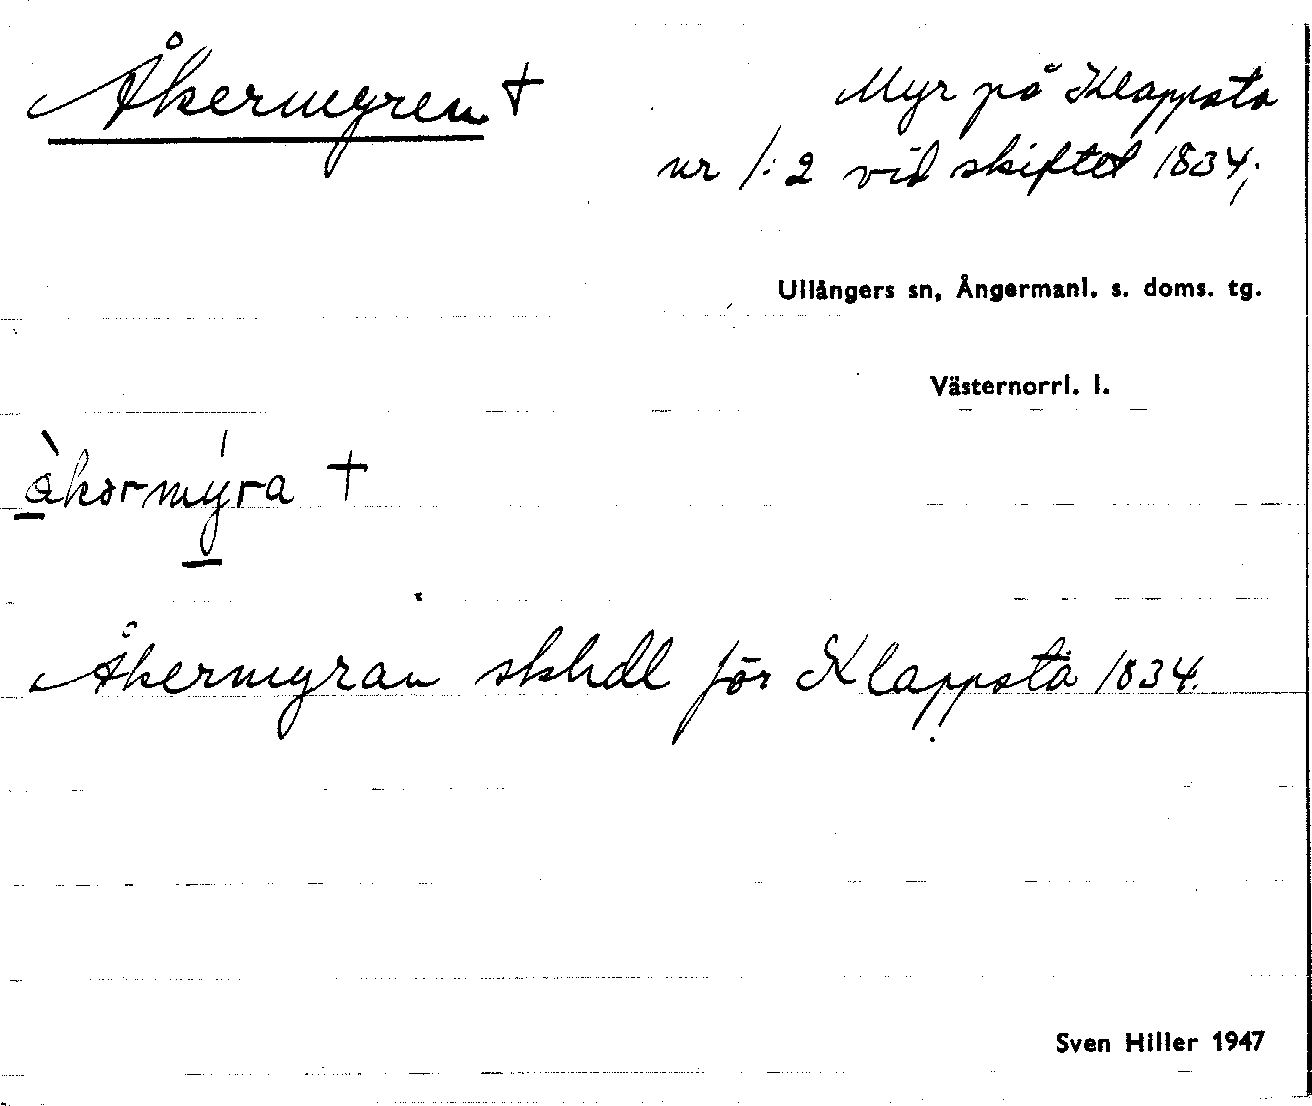 Åkermyren †
Myr på Klappsta
nr 1:2 vid skiftet 1834;
Ullångers sn, Ångermanl. s. doms. tg.
Västernorrl. l.
àkərmýra †
Åkermyran skhdl för Klappsta 1834.
Sven Hiller 1947